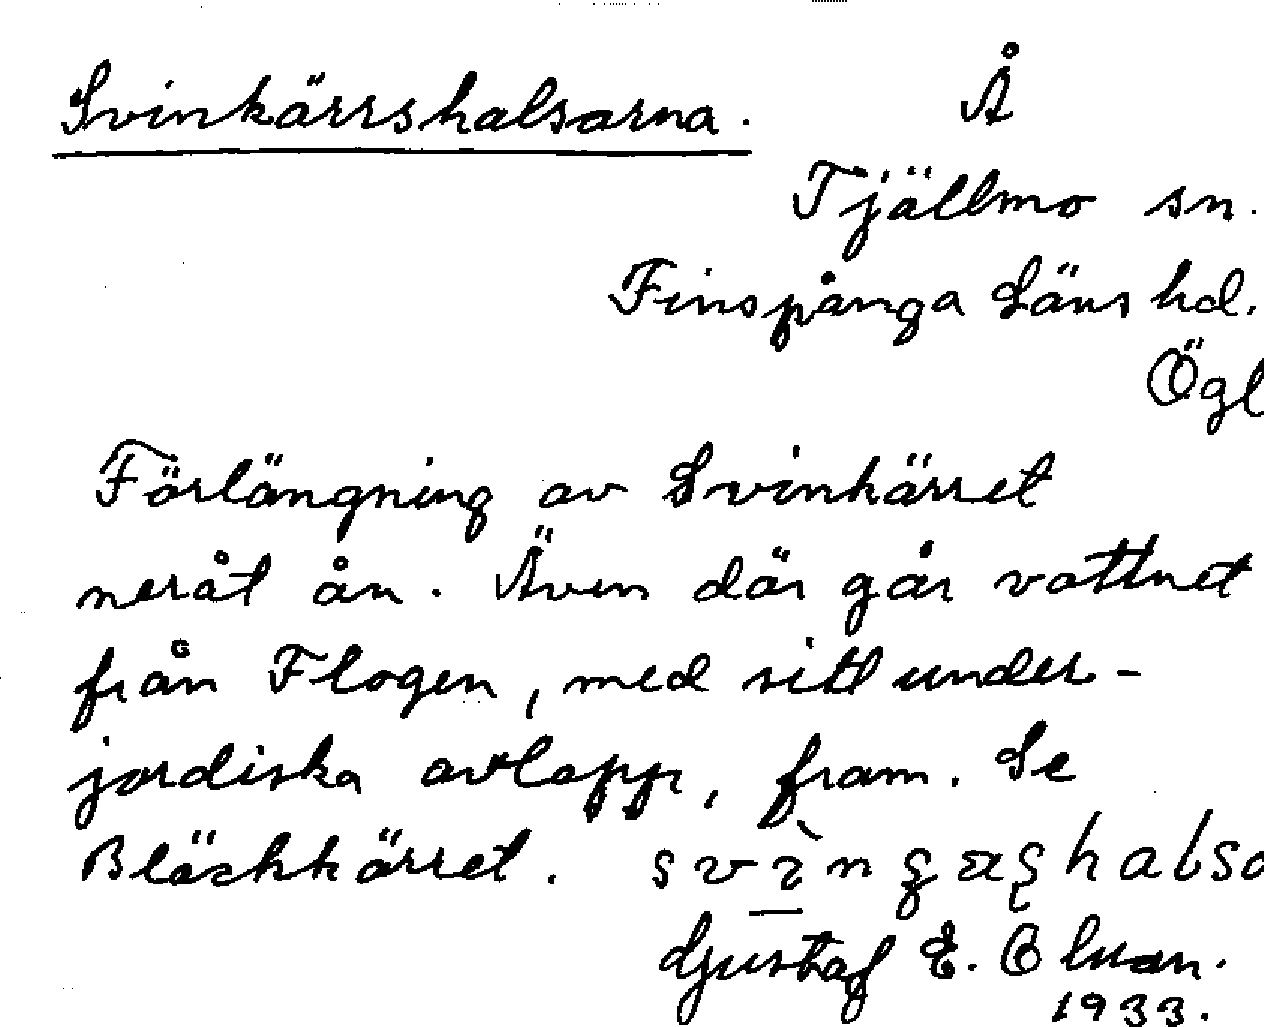 Svinkärrshalsarna. Å
Tjällmo sn.
Finspånga Läns hd.
Ögl
Förlängning av Svinkärret
neråt ån. Även där går vattnet
från Flogen, med sitt under-
jordiska avlopp, fram. Se
Bläckkärret.
Gustaf E. Olsson.
1933.